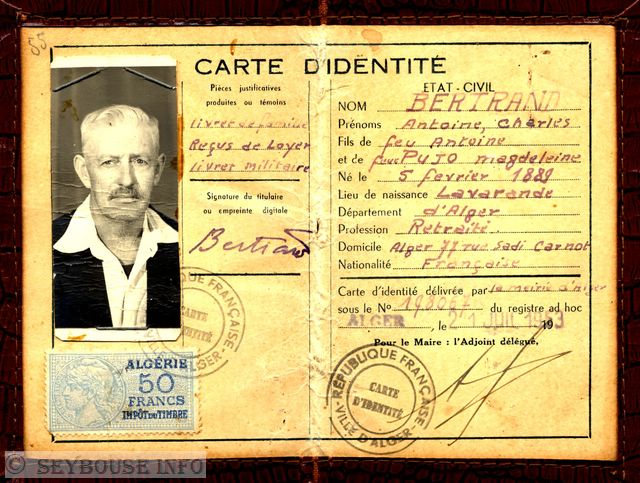 55
CARTE D'IDENTITÉ
Pièces justificatives
produites ou témoins
livret de famille
Reçus de Loyer
livret militaire
Signature du titulaire
ou empreinte digitale
Bertrand
ETAT - CIVIL
NOM BERTRAND
Prénoms Antoine, Charles
Fils de feu Antoine
et de feue PUJO magdeleine
Né le 5 février 1889
Lieu de naissance Lavarande
Département d'Alger
Profession Retraité
Domicile Alger 77 rue Sadi Carnot
Nationalité Française
Carte d'identité délivrée par la mairie d'Alger
sous le No du registre ad hoc
ALGER, le 1953
Pour le Maire : l'Adjoint délégué,
RÉPUBLIQUE FRANÇAISE
CARTE
D'IDENTITÉ
VILLE D'ALGER
QUE FRANÇAISE
CARTE
D'IDENTITÉ
D'ALGER
ALGÉRIE
50
FRANCS
IMPÔT DU TIMBRE
© SEYBOUSE INFO